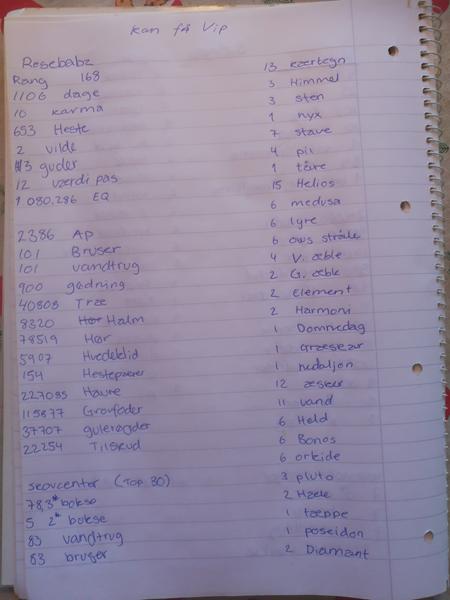 Kan få Vip
Rosebabz
Rang 168
1106 dage
10 karma
653 Heste
2 vilde
3 guder
12 værdi pas
1 080,286 EQ
2386 Ap
101 Bruser
101 vandtrug
900 gødning
40808 Træ
8320 Halm
78519 Hør
5907 Hvedeklid
154
227085 Havre
115877 Grovfoder
37707 gulerødder
22254 Tilskud
skovcenter (Top 80)
78,3* bokse
5 2* bokse
83 vandtrug
83 bruser
13 kærtegn
3 Himmel
3 sten
1 nyx
7 stave
4 pil
1 tåre
15 Helios
6 medusa
6 lyre
6 ows stråle
4 V. æble
2 G. æble
2 Element
2 Harmoni
1 Dommedag
1
1 medaljon
12 æsker
11 vand
6 Held
6 Bonos
6 orkide
3 pluto
2 Hæle
1 tæppe
1 poseidon
2 Diamant